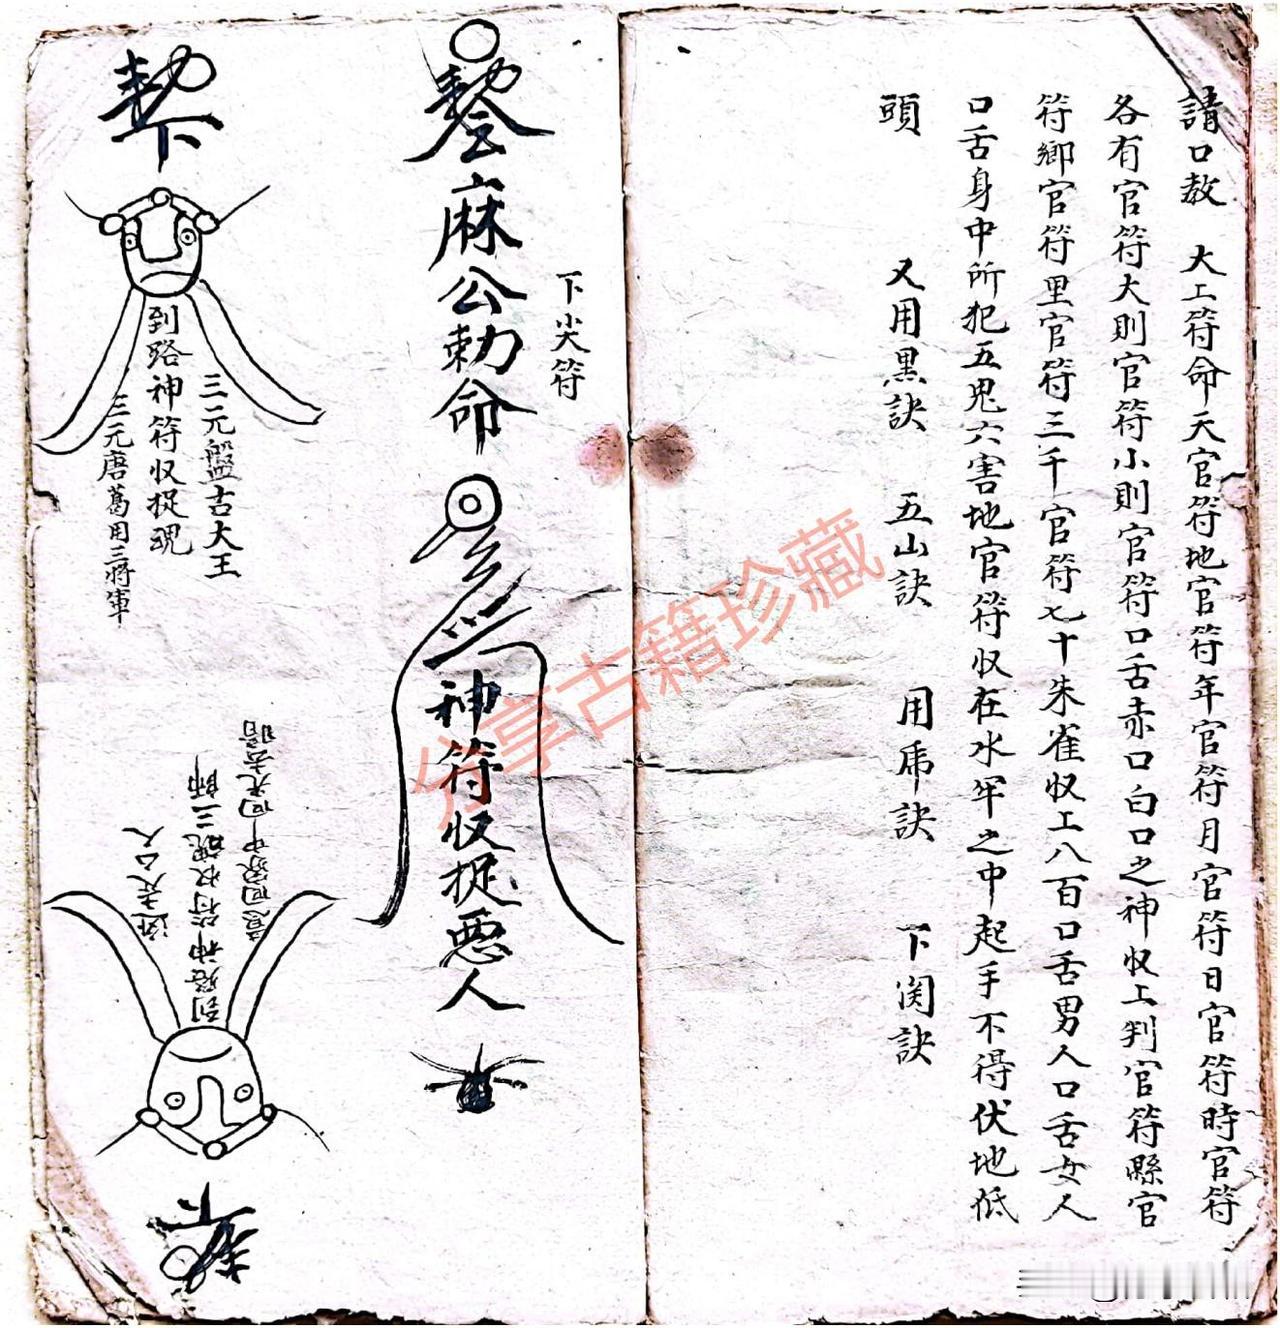 請口教　大上符命天官符地官符年官符月官符日官符時官符
各有官符大則官符小則官符口舌赤口白口之神收上判官符縣官
符鄉官符里官符三千官符七十朱雀收上八百口舌男人口舌女人
口舌身中所犯五鬼六害地官符收在水牢之中起手不得伏地低
頭　又用黑訣　五山訣　用虎訣　下関訣
下尖符
麻公勅命
神符收捉惡人
三元盤古大王
到路神符收捉魂
三元唐葛用三將軍
到路神符收魂三師
分享古籍珍藏